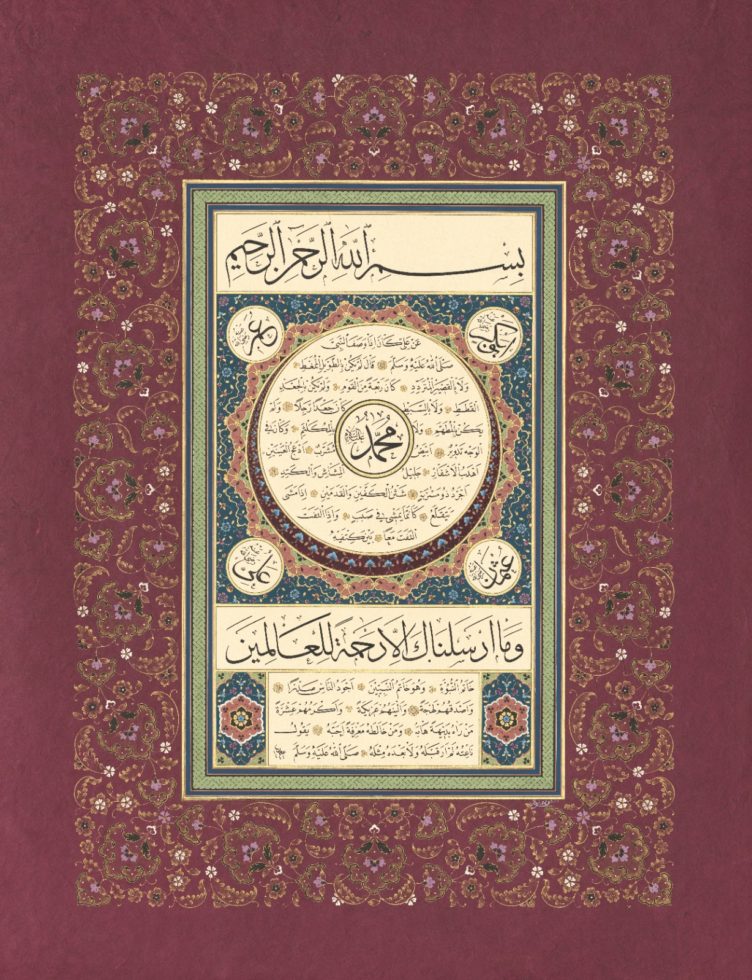 بِسْمِ اللَّهِ الرَّحْمَنِ الرَّحِيمِ
ابوبكر
عمر
عن علي كان اذا وصف النبي
صلى الله عليه وسلم قال لم يكن بالطويل الممغط
ولا بالقصير المتردد كان ربعة من القوم ولم يكن بالجعد
القطط ولا بالسبط كان جعدا رجلا ولم
يكن بالمطهم ولا بالمكلثم وكان في
محمد عليه السلام
الوجه تدوير ابيض مشرب ادعج العينين
اهدب الاشفار جليل المشاش والكتد
اجرد ذو مسربة شثن الكفين والقدمين اذا مشى
تقلع كانما يمشي في صبب واذا التفت
التفت معا بين كتفيه
عثمان
علي
وما ارسلناك الا رحمة للعالمين
خاتم النبوة وهو خاتم النبيين اجود الناس صدرا
واصدقهم لهجة والينهم عريكة واكرمهم عشرة
من رآه بديهة هابه ومن خالطه معرفة احبه يقول
ناعته لم ار قبله ولا بعده مثله صلى الله عليه وسلم